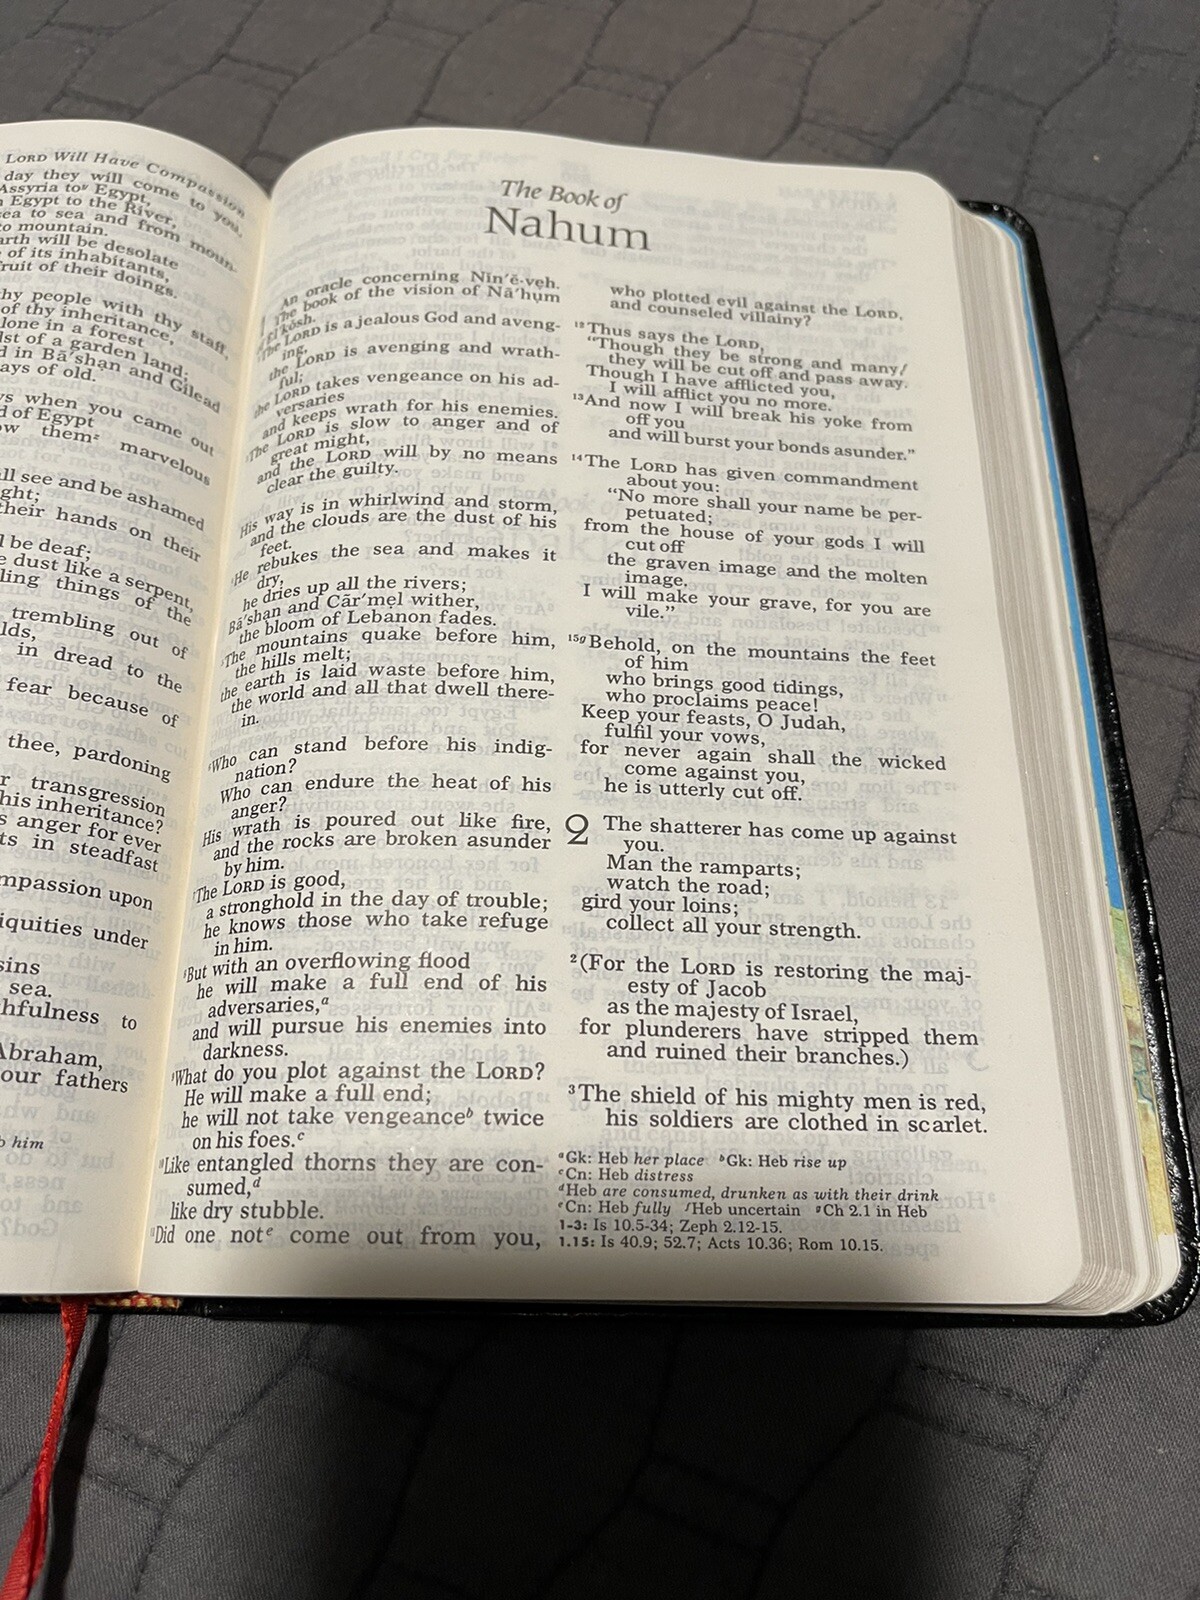 LORD Will Have Compassion
day they will come to you,
Assyria to Egypt,
Egypt to the River,
sea to sea and from moun-
to mountain.
earth will be desolate
of its inhabitants,
fruit of their doings.
thy people with thy staff,
of thy inheritance,
alone in a forest
midst of a garden land;
in Bā′shan and Gilead
days of old.
when you came out
of Egypt
show themᶻ marvelous
shall see and be ashamed
might;
their hands on their
be deaf;
dust like a serpent,
crawling things of the
trembling out of
in dread to the
fear because of
thee, pardoning
transgression
his inheritance?
his anger for ever
in steadfast
compassion upon
iniquities under
sins
sea.
faithfulness to
Abraham,
our fathers
him
The Book of
Nahum
An oracle concerning Nĭn′ĕ·veh.
The book of the vision of Nā′hum
of El′kŏsh.
The LORD is a jealous God and aveng-
ing,
the LORD is avenging and wrath-
ful;
the LORD takes vengeance on his ad-
versaries
and keeps wrath for his enemies.
³The LORD is slow to anger and of
great might,
and the LORD will by no means
clear the guilty.
His way is in whirlwind and storm,
and the clouds are the dust of his
feet.
⁴He rebukes the sea and makes it
dry,
he dries up all the rivers;
Bā′shan and Cär′mel wither,
the bloom of Lebanon fades.
⁵The mountains quake before him,
the hills melt;
the earth is laid waste before him,
the world and all that dwell there-
in.
⁶Who can stand before his indig-
nation?
Who can endure the heat of his
anger?
His wrath is poured out like fire,
and the rocks are broken asunder
by him.
⁷The LORD is good,
a stronghold in the day of trouble;
he knows those who take refuge
in him.
⁸But with an overflowing flood
he will make a full end of his
adversaries,ᵃ
and will pursue his enemies into
darkness.
⁹What do you plot against the LORD?
He will make a full end;
he will not take vengeanceᵇ twice
on his foes.ᶜ
¹⁰Like entangled thorns they are con-
sumed,ᵈ
like dry stubble.
¹¹Did one notᵉ come out from you,
who plotted evil against the LORD,
and counseled villainy?
¹²Thus says the LORD,
“Though they be strong and many,ᶠ
they will be cut off and pass away.
Though I have afflicted you,
I will afflict you no more.
¹³And now I will break his yoke from
off you
and will burst your bonds asunder.”
¹⁴The LORD has given commandment
about you:
“No more shall your name be per-
petuated;
from the house of your gods I will
cut off
the graven image and the molten
image.
I will make your grave, for you are
vile.”
¹⁵ᵍBehold, on the mountains the feet
of him
who brings good tidings,
who proclaims peace!
Keep your feasts, O Judah,
fulfil your vows,
for never again shall the wicked
come against you,
he is utterly cut off.
2 The shatterer has come up against
you.
Man the ramparts;
watch the road;
gird your loins;
collect all your strength.
²(For the LORD is restoring the maj-
esty of Jacob
as the majesty of Israel,
for plunderers have stripped them
and ruined their branches.)
³The shield of his mighty men is red,
his soldiers are clothed in scarlet.
ᵃGk: Heb her place ᵇGk: Heb rise up
ᶜCn: Heb distress
ᵈHeb are consumed, drunken as with their drink
ᵉCn: Heb fully ᶠHeb uncertain ᵍCh 2.1 in Heb
1-3: Is 10.5-34; Zeph 2.12-15.
1.15: Is 40.9; 52.7; Acts 10.36; Rom 10.15.